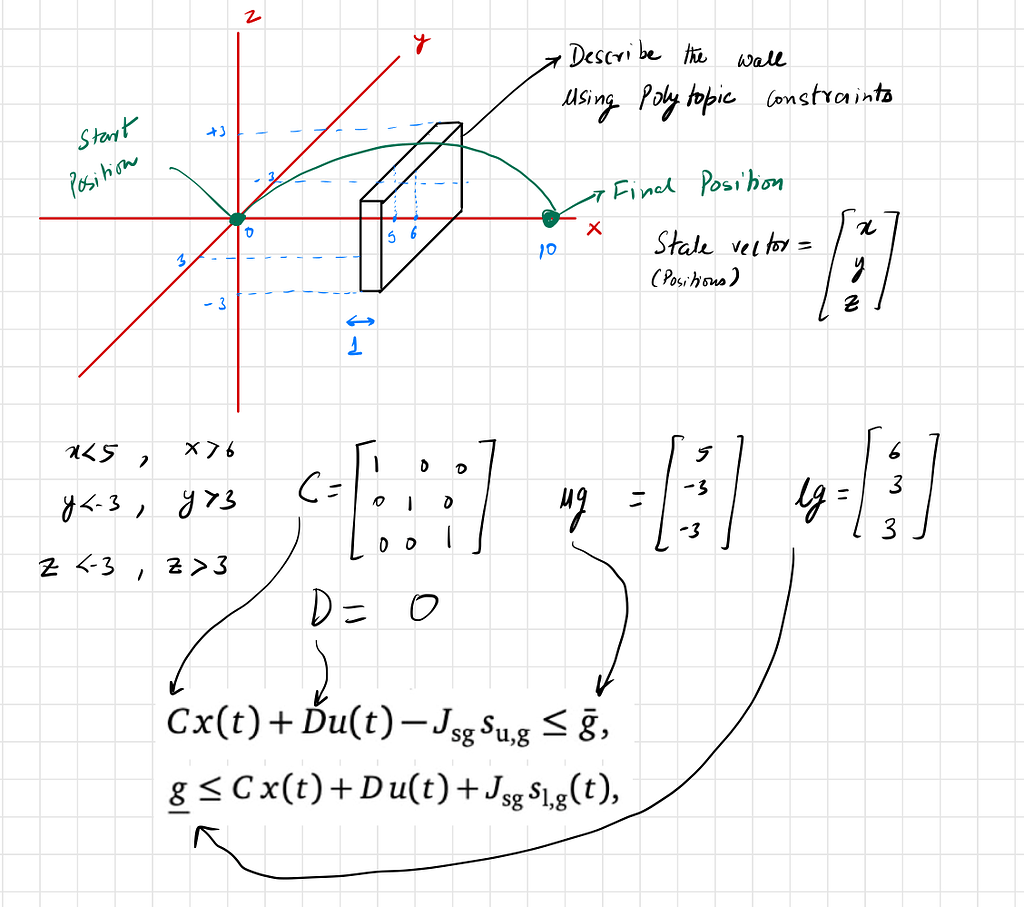 z
y
Describe the wall
using Polytopic constraints
Start
Position
+3
-3
Final Position
0
5 6
10
x
3
-3
1
State vector = [x
(Positions) y
z]
x<5 , x>6
y<-3 , y>3
z<-3 , z>3
C = [1 0 0
0 1 0
0 0 1]
ug = [5
-3
-3]
lg = [6
3
3]
D = 0
Cx(t) + Du(t) − J_sg s_u,g ≤ g̅,
g̲ ≤ C x(t) + D u(t) + J_sg s_l,g(t),